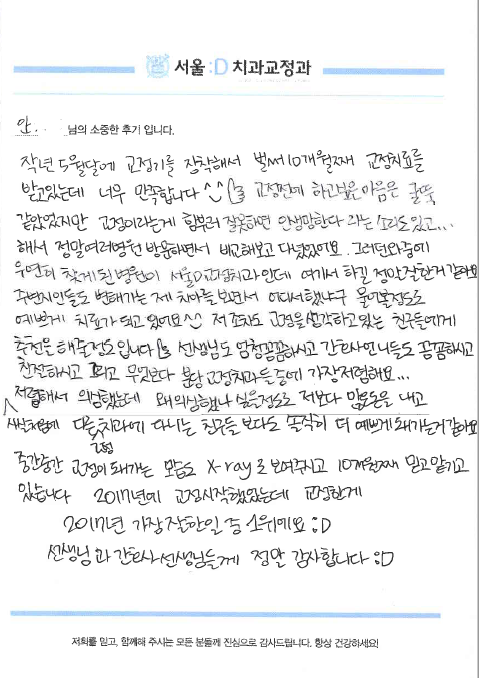 서울:D 치과교정과
안.. 님의 소중한 후기 입니다.
작년 5월달에 교정기를 장착해서 벌써 10개월째 교정치료를
받고있는데 너무 만족합니다 교정전에 하고싶은마음은 굴뚝
같았었지만 교정이라는게 함부러 잘못하면 인생망한다 라는 소리도있고...
해서 정말여러병원 방문하면서 비교해보고 다녔었어요. 그러던와중에
우연히 찾게 된병원이 서울D교정치과인데 여기서 하길 정말잘한거 같아요
주변지인들도 변해가는 제 치아를 보면서 어디서했냐구 물어볼정도로
예쁘게 치료가 되고 있어요 저 조차도 교정을 생각하고있는 친구들에게
추천을 해줄정도입니다 선생님도 엄청꼼꼼하시고 간호사언니들도 꼼꼼하시고
친절하시고 그리고 무엇보다 분당 교정치과들중에 가장저렴해요...
저렴해서 의심했는데 왜의심했나 싶을정도로 저보다 많은돈을 내고
사실처음에 다른 교정 치과에 다니는 친구들 보다도 솔직히 더 예쁘게돼가는거같아요
중간중간 교정이 돼가는 모습도 X-ray로 보여주시고 10개월째 믿고맡기고
있습니다 2017년에 교정시작했었는데 교정한게
2017년 가장 잘한일 중 1위에요 :D
선생님과 간호사선생님들께 정말 감사합니다 :D
저희를 믿고, 함께해 주시는 모든 분들께 진심으로 감사드립니다. 항상 건강하세요!